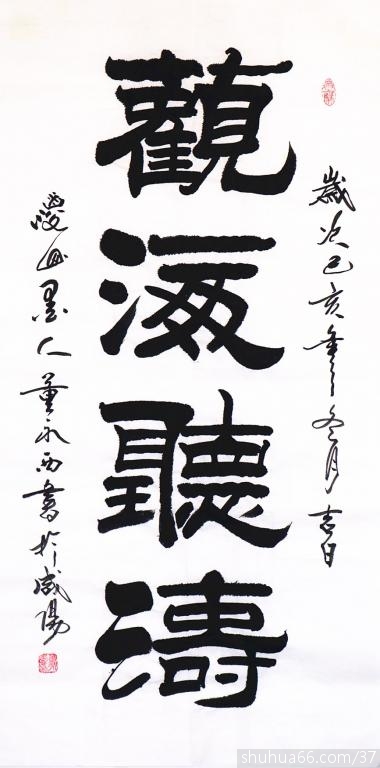 歲次己亥年冬月吉日
觀海聽濤
山墨人董永西書於咸陽
shuhua66.com/37